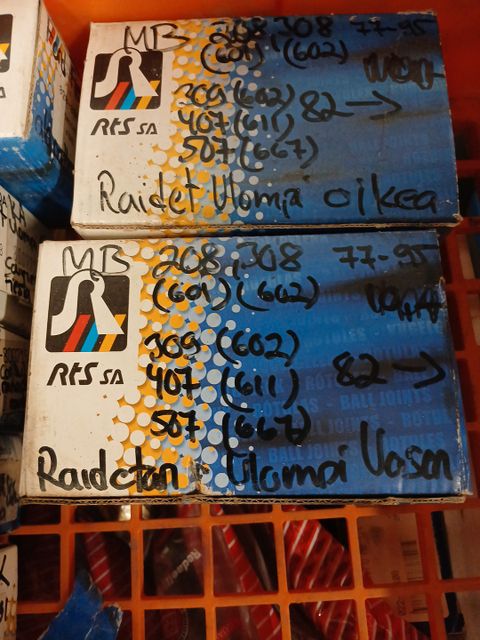 MB 208 308 77-95
(601) (602)
309 (602) 82 →
407 (611)
507 (667)
RtS SA
Raidet Ulompi oikea
MB 208, 308 77-95
(601) (602)
309 (602)
407 (611) 82 →
507 (667)
RtS SA
BALL JOINTS
Raidetan Ulompi Vasen